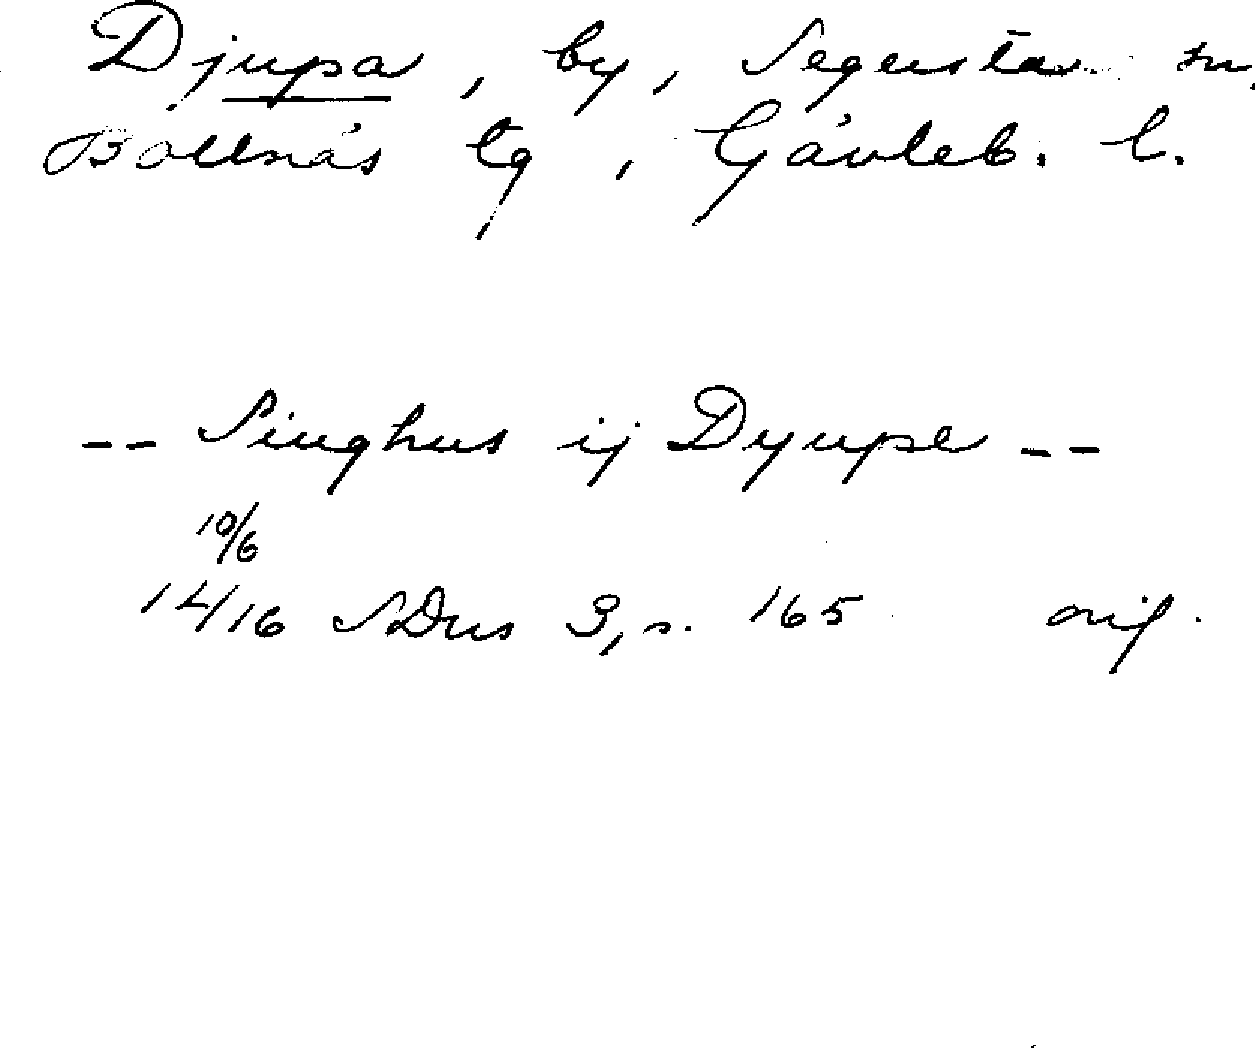 Djupa, by, Segersta sn,
Bollnäs tg, Gävleb. l.
-- Siughus ij Dyupe --
10/6
1416 SDns 3, s. 165 orig.